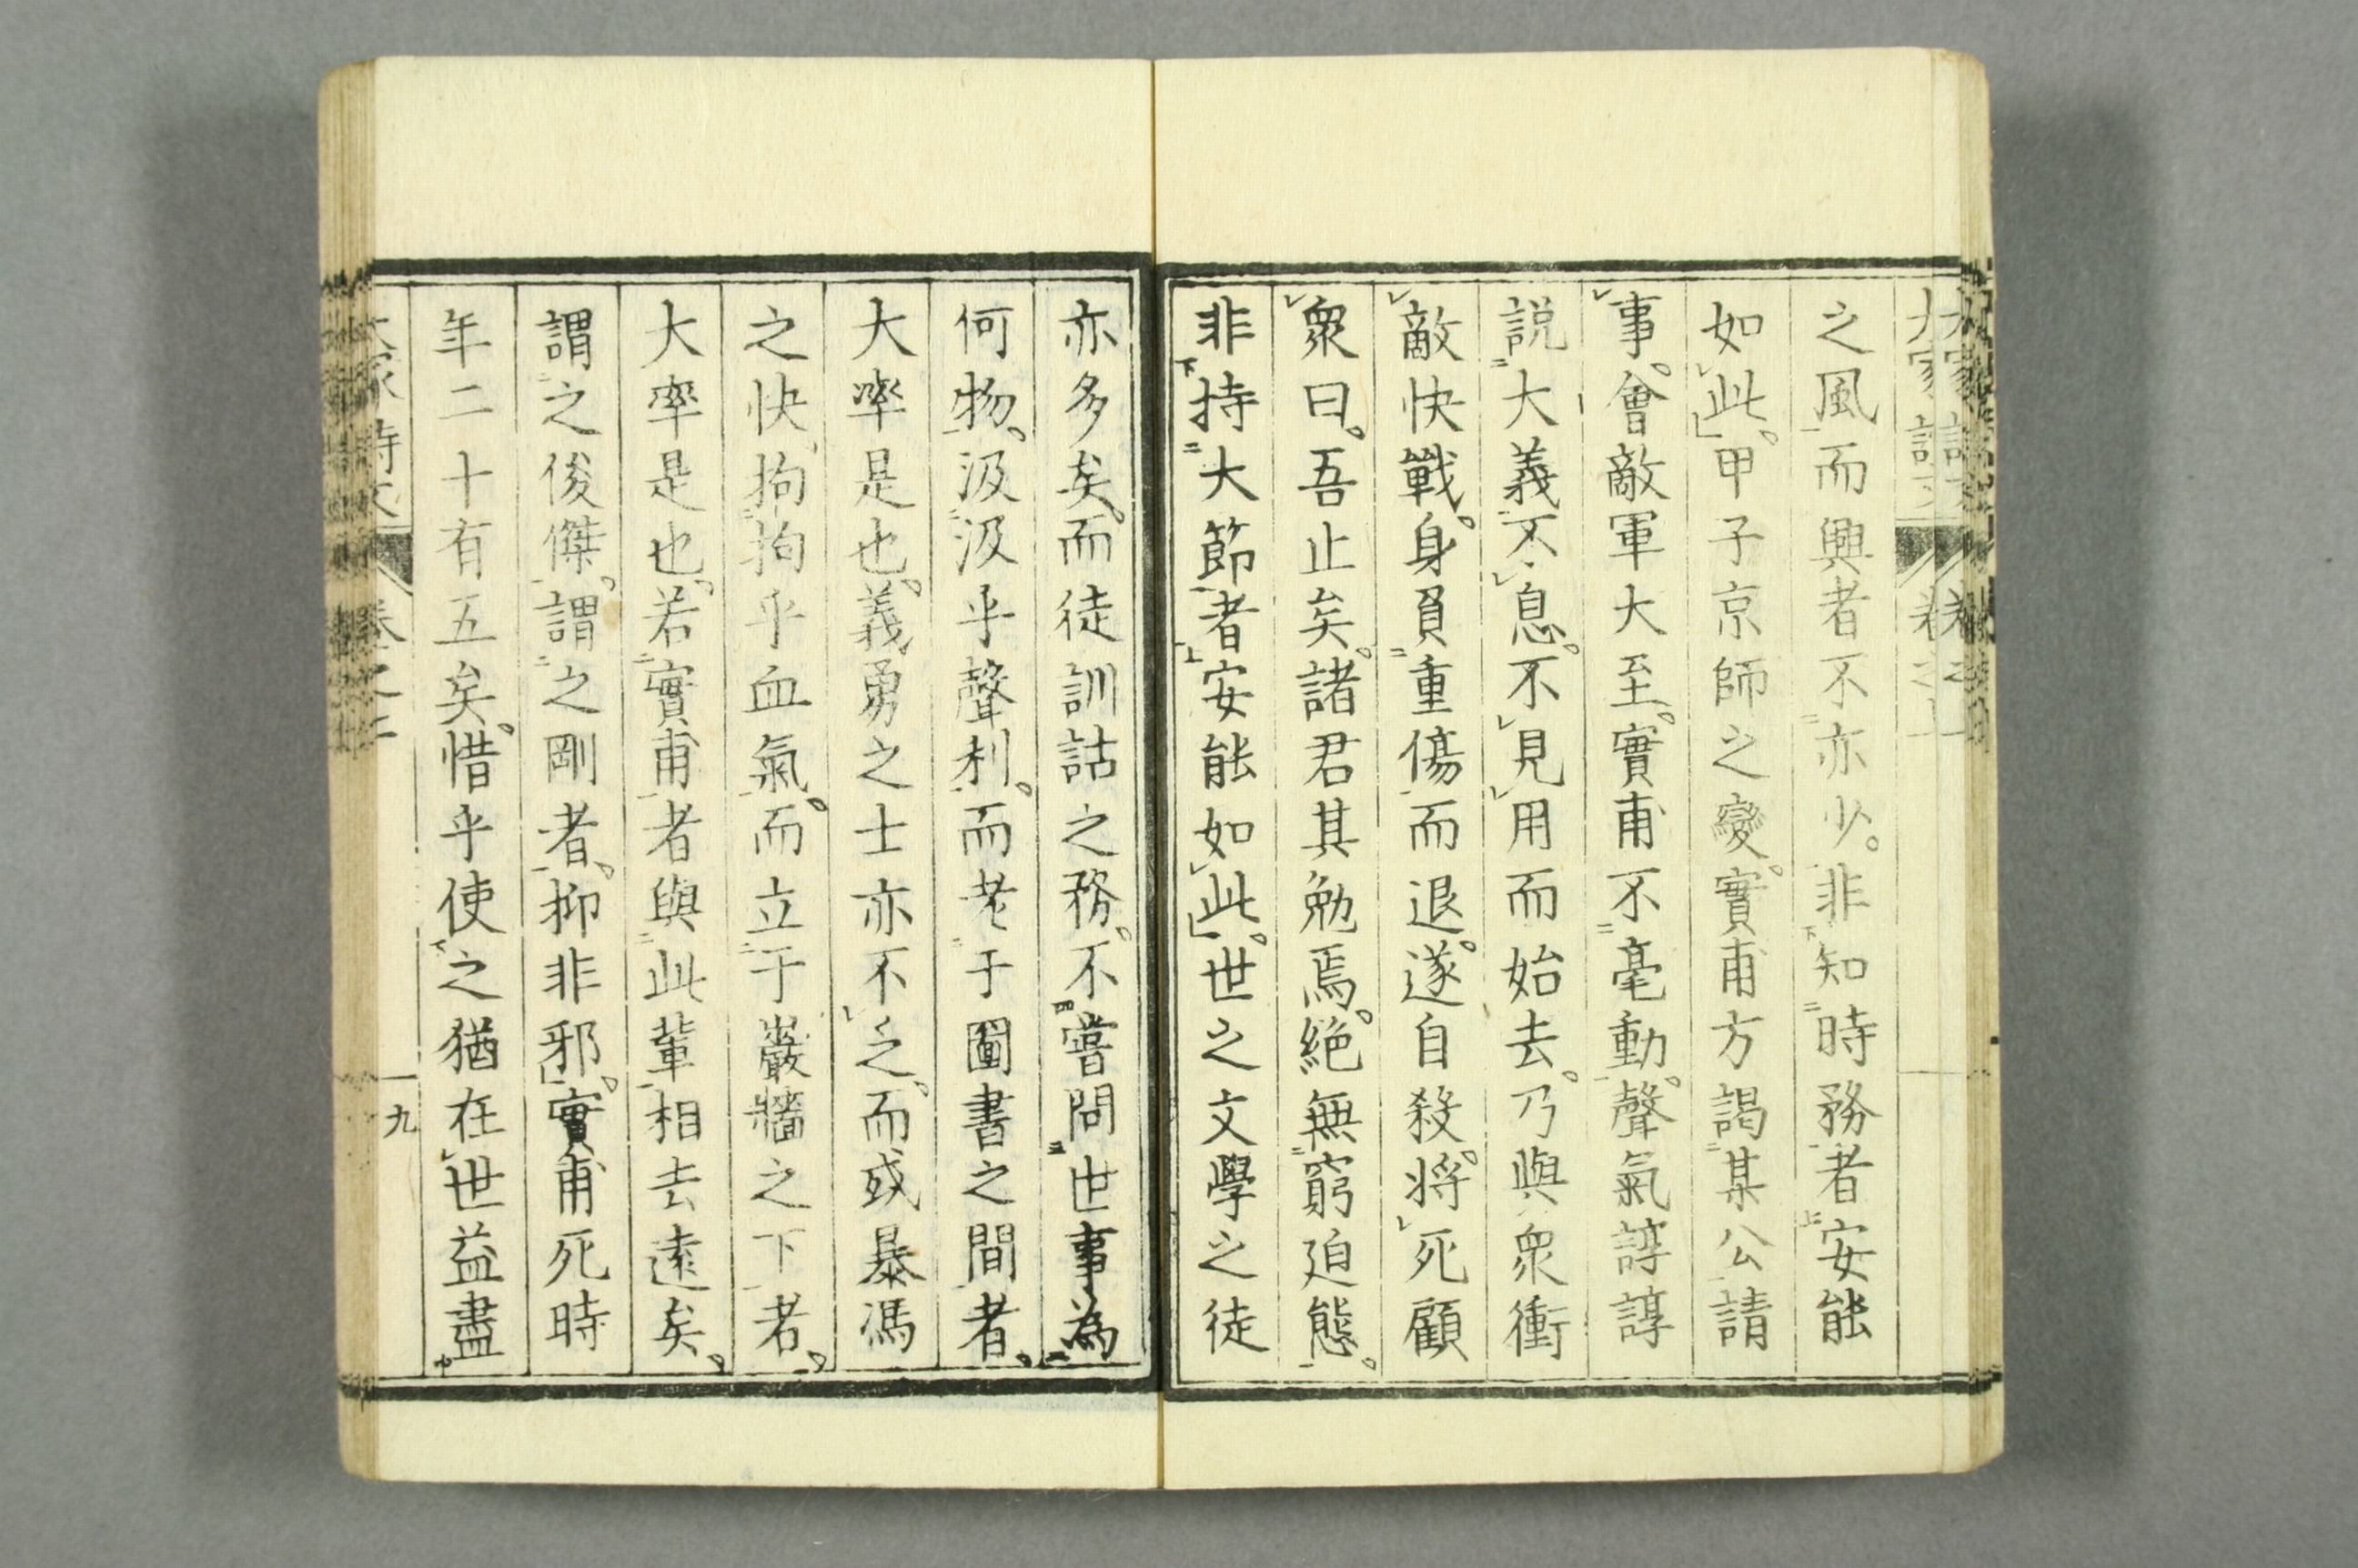 之風而興者不亦少。非知時務者安能
如此。甲子京師之變。實甫方謁某公請
事。會敵軍大至。實甫不毫動。聲氣諄諄
説大義不息。不見用而始去。乃與衆衝
敵快戰。身負重傷而退。遂自殺。將死顧
衆曰。吾止矣。諸君其勉焉。絶無窮迫態。
非持大節者安能如此。世之文學之徒
亦多矣。而徒訓詁之務。不嘗問世事為
何物。汲汲乎聲利。而老于圖書之間者。
大率是也。義勇之士亦不乏。而或暴馮
之快。拘拘乎血氣。而立于巖牆之下者。
大率是也。若實甫者與此輩相去遠矣。
謂之俊傑。謂之剛者。抑非邪。實甫死時
年二十有五矣。惜乎使之猶在世益盡
九